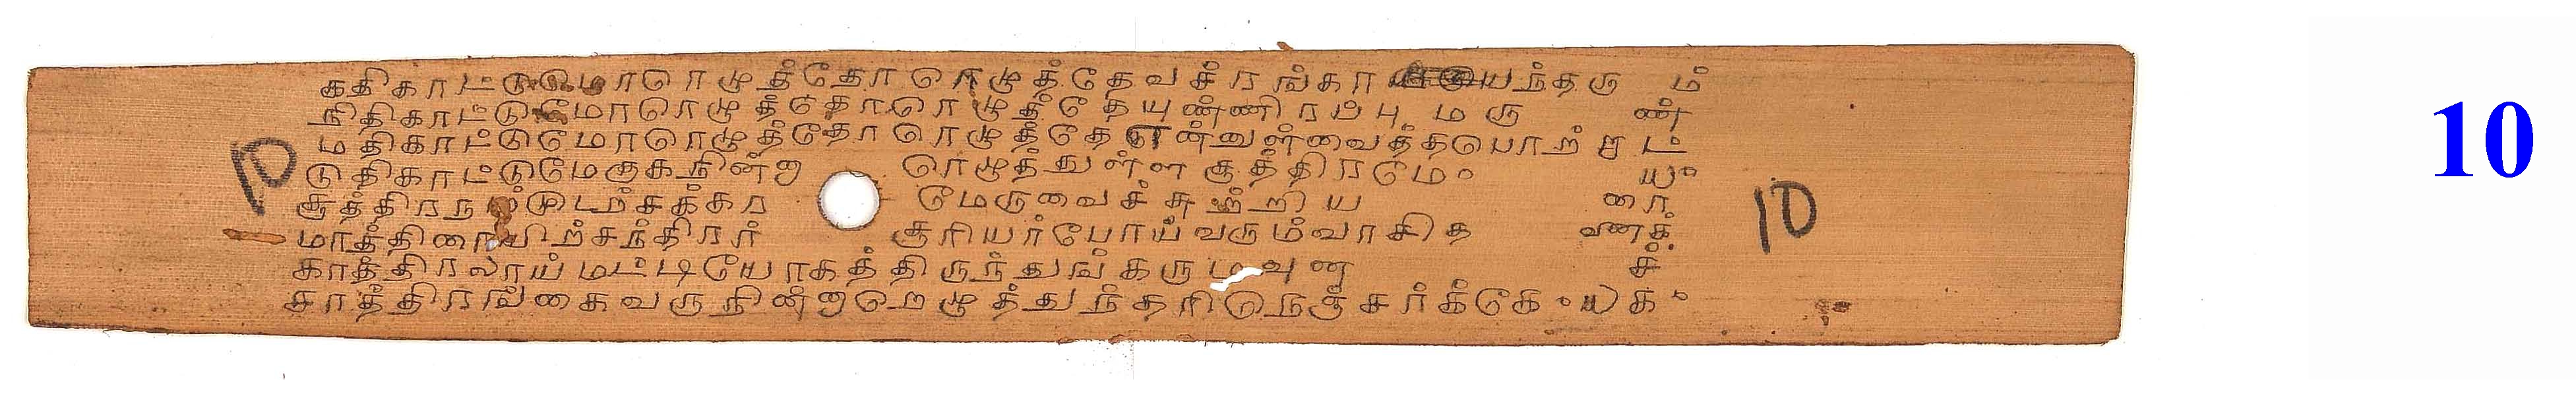 கதிகாட்டுமொரெழுத்தோரெழுத்தேவச்சரங்கா யந்தரு ம்
நிதிகாட்டுமோரெழுத்தோரெழுத்தேயுண்ணிரப்பு மரு ண்
மதிகாட்டுமோரெழுத்தோரெழுத்தே என்னுள்வைத்தபொற் ட்
டுதிகாட்டுமேருகநின்ற ரெழுத்துள்ள சூத்திரமே௦ ய௦
சூத்திரந டற்சக்கர மேருவைச்சுற்றிய ரை
மாத்திரையிற்சந்திரர் சூரியர்போய்வரும்வாசித வணக்
காத்திரலாய்மட்டியோகத்திருந்துங்கரும வுன ச்
சாத்திரங்கைவருநின்றெழுத்துந்தரிநெஞ்சர்க்கே ௦ ௰ க ௦
10
10
10